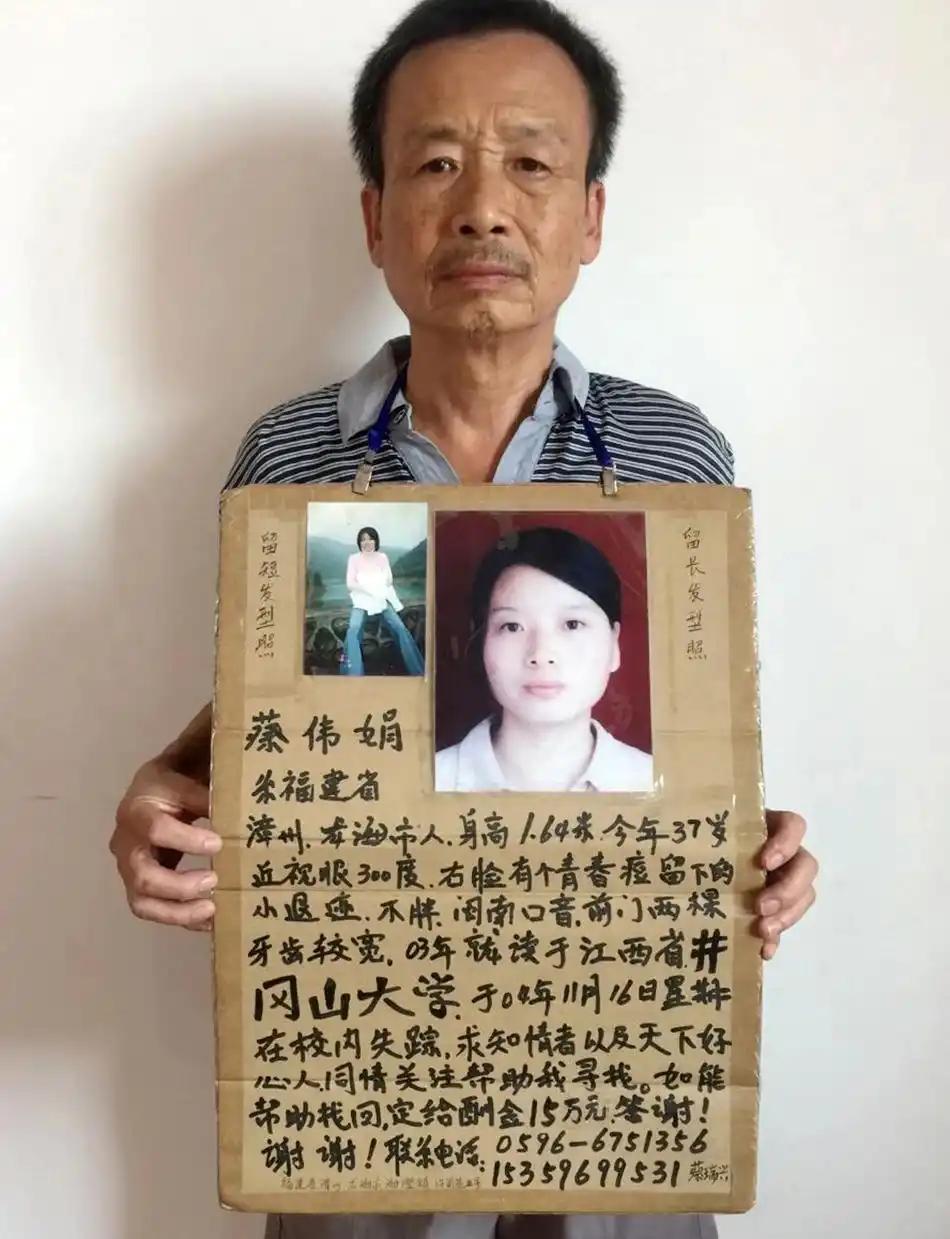 留短发型照
留长发型照
蔡伟娟
系福建省
漳州.龙海市人.身高1.64米.今年37岁
近视眼300度.右脸有个青春痘留下的
小退迹.不胖.闽南口音.前门两棵
牙齿较宽.03年就读于江西省井
冈山大学.于04年11月16日星期二
在校内失踪.求知情者以及天下好
心人.同情关注帮助我寻找。如能
帮助找回,定给酬金15万元.答谢!
谢谢!联系电话:0596-6751356
15359699531 蔡瑞兴